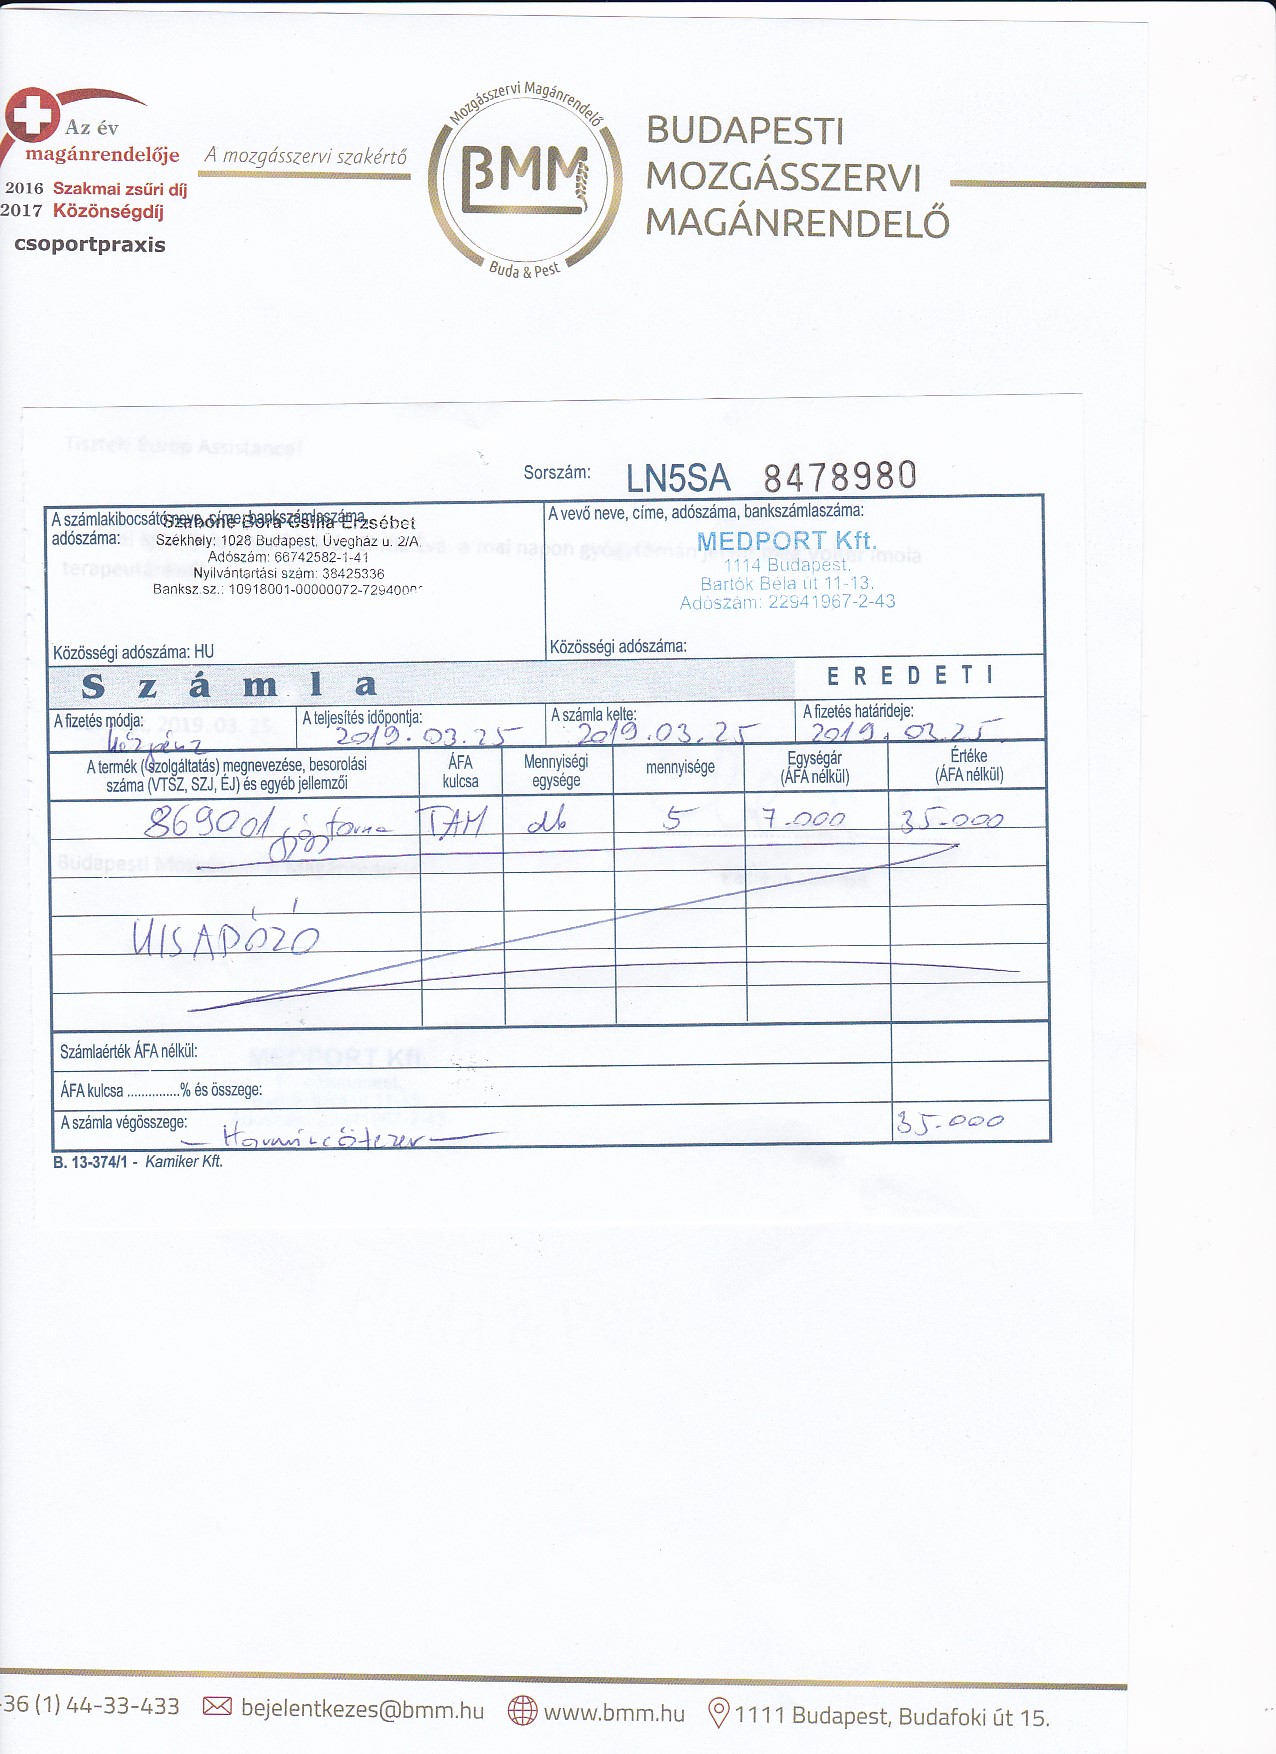 Az év
magánrendelője
2016 Szakmai zsűri díj
2017 Közönségdíj
csoportpraxis
A mozgásszervi szakértő
Mozgásszervi Magánrendelő
BMM
Buda & Pest
BUDAPESTI
MOZGÁSSZERVI
MAGÁNRENDELŐ
Sorszám: LN5SA 8478980
A számlakibocsátó neve, címe, bankszámlaszáma
adószáma:
Szabóné Bora Csilla Erzsébet
Székhely: 1028 Budapest, Üvegház u. 2/A
Adószám: 66742582-1-41
Nyilvántartási szám: 38425336
Banksz.sz.: 10918001-00000072-729400
Közösségi adószáma: HU
A vevő neve, címe, adószáma, bankszámlaszáma:
MEDPORT Kft.
1114 Budapest,
Bartók Béla út 11-13.
Adószám: 22941967-2-43
Közösségi adószáma:
Számla
EREDETI
A fizetés módja: A teljesítés időpontja: A számla kelte: A fizetés határideje:
készpénz 2019.03.25 2019.03.25 2019.03.25
A termék (szolgáltatás) megnevezése, besorolási
száma (VTSZ, SZJ, ÉJ) és egyéb jellemzői
ÁFA
kulcsa
Mennyiségi
egysége
mennyisége
Egységár
(ÁFA nélkül)
Értéke
(ÁFA nélkül)
869001 gyógytorna TAM db 5 7.000 35.000
KISADÓZÓ
Számlaérték ÁFA nélkül:
ÁFA kulcsa ..............% és összege:
A számla végösszege: Harmincötezer 35.000
B. 13-374/1 - Kamiker Kft.
36 (1) 44-33-433 bejelentkezes@bmm.hu www.bmm.hu 1111 Budapest, Budafoki út 15.